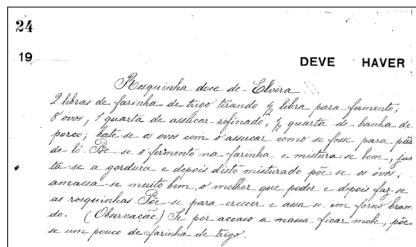 24
19 DEVE HAVER
Rosquinha doce de Elvira
2 libras de farinha de trigo tirando ½ libra para fermento;
8 ovos, 1 quarta de assucar refinado, ½ quarta de banha de
porco; bate-se os ovos com o assucar como se fosse para pão
de ló. Põe-se o fermento na farinha e mistura-se bem, jun
ta-se a gordura e depois disto misturado põe-se os ovos;
amassa-se muito bem, o melhor que puder e depois faz-se
as rosquinhas. Põe-se para crescer e assa-se em forno bran
do. (Observação.) Se por accaso a massa ficar mole, põe-
se um pouco de farinha de trigo.